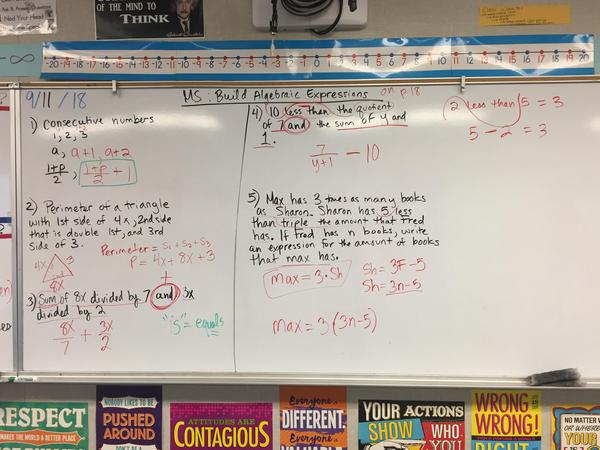 OF THE MIND TO
THINK
-20 -19 -18 -17 -16 -15 -14 -13 -12 -11 -10 -9 -8 -7 -6 -5 -4 -3 -2 -1 0 1 2 3 4 5 6 7 8 9 10 11 12 13 14 15 16 17 18 19 20
-∞
9/11/18
MS: Build Algebraic Expressions
on p.18
1) Consecutive numbers
1, 2, 3
a, a+1, a+2
1+p/2, 1+p/2 + 1
2) Perimeter of a triangle
with 1st side of 4x, 2nd side
that is double 1st, and 3rd
side of 3.
Perimeter = S1 + S2 + S3
P = 4x + 8x + 3
4x 3
8x
+
3) Sum of 8x divided by 7 and 3x
divided by 2
8x/7 + 3x/2
"is" = equals
4) 10 less than the quotient
of 7 and the sum of y and
1.
7/y+1 - 10
2 less than 5 = 3
5 - 2 = 3
5) Max has 3 times as many books
as Sharon. Sharon has 5 less
than triple the amount that Fred
has. If Fred has n books, write
an expression for the amount of books
that max has.
max = 3·Sh
Sh = 3F-5
Sh = 3n-5
Max = 3(3n-5)
RESPECT
MAKES THE WORLD A BETTER PLACE
NOBODY LIKES TO BE
PUSHED
AROUND
ATTITUDES ARE
CONTAGIOUS
Everyone is
DIFFERENT.
Everyone is
VALUABLE
YOUR ACTIONS
SHOW WHO YOU
WRONG
WRONG!
RIGHT
NO MATTER W
OR WHERE